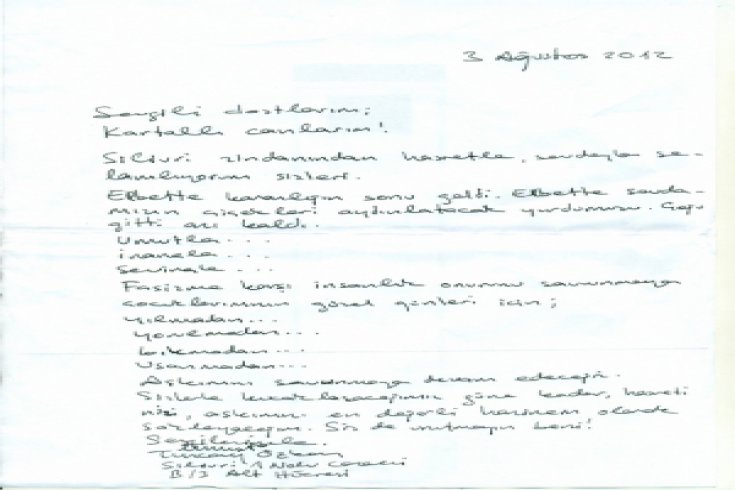 3 Ağustos 2012
Sevgili dostlarım;
Kartallı canlarım!
Silivri zindanından hasretle, sevdayla se-
lamlıyorum sizleri.
Elbette karanlığın sonu geldi. Elbette sevda-
mızın çiçekleri aydınlatacak yurdumuzu. Çoğu
gitti azı kaldı.
Umutla...
inançla...
Sevinçle...
Faşizme karşı insanlık onurunu savunmaya
çocuklarımızın güzel günleri için;
yılmadan...
yorulmadan...
bıkmadan...
Usanmadan...
Aşkımızı savunmaya devam edeceğiz.
Sizlerle kucaklaşacağımız güne kadar, hasreti
nizi, aşkımızı en değerli hazinem olarak
saklayacağım. Siz de unutmayın beni!
Sevgilerimle.
Tuncay Özkan
Silivri 1 Nolu Cezaevi
B/3 Alt Hücresi